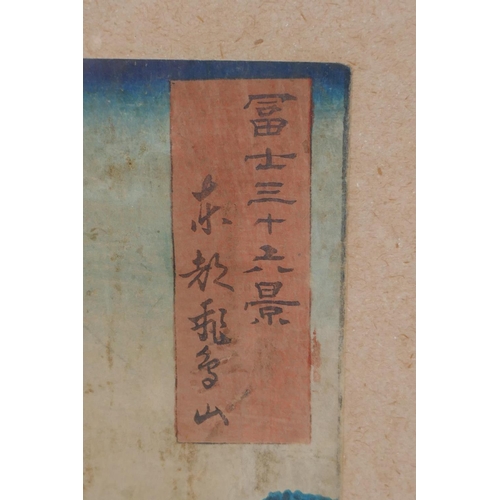 冨士三十六景
東都飛鳥山